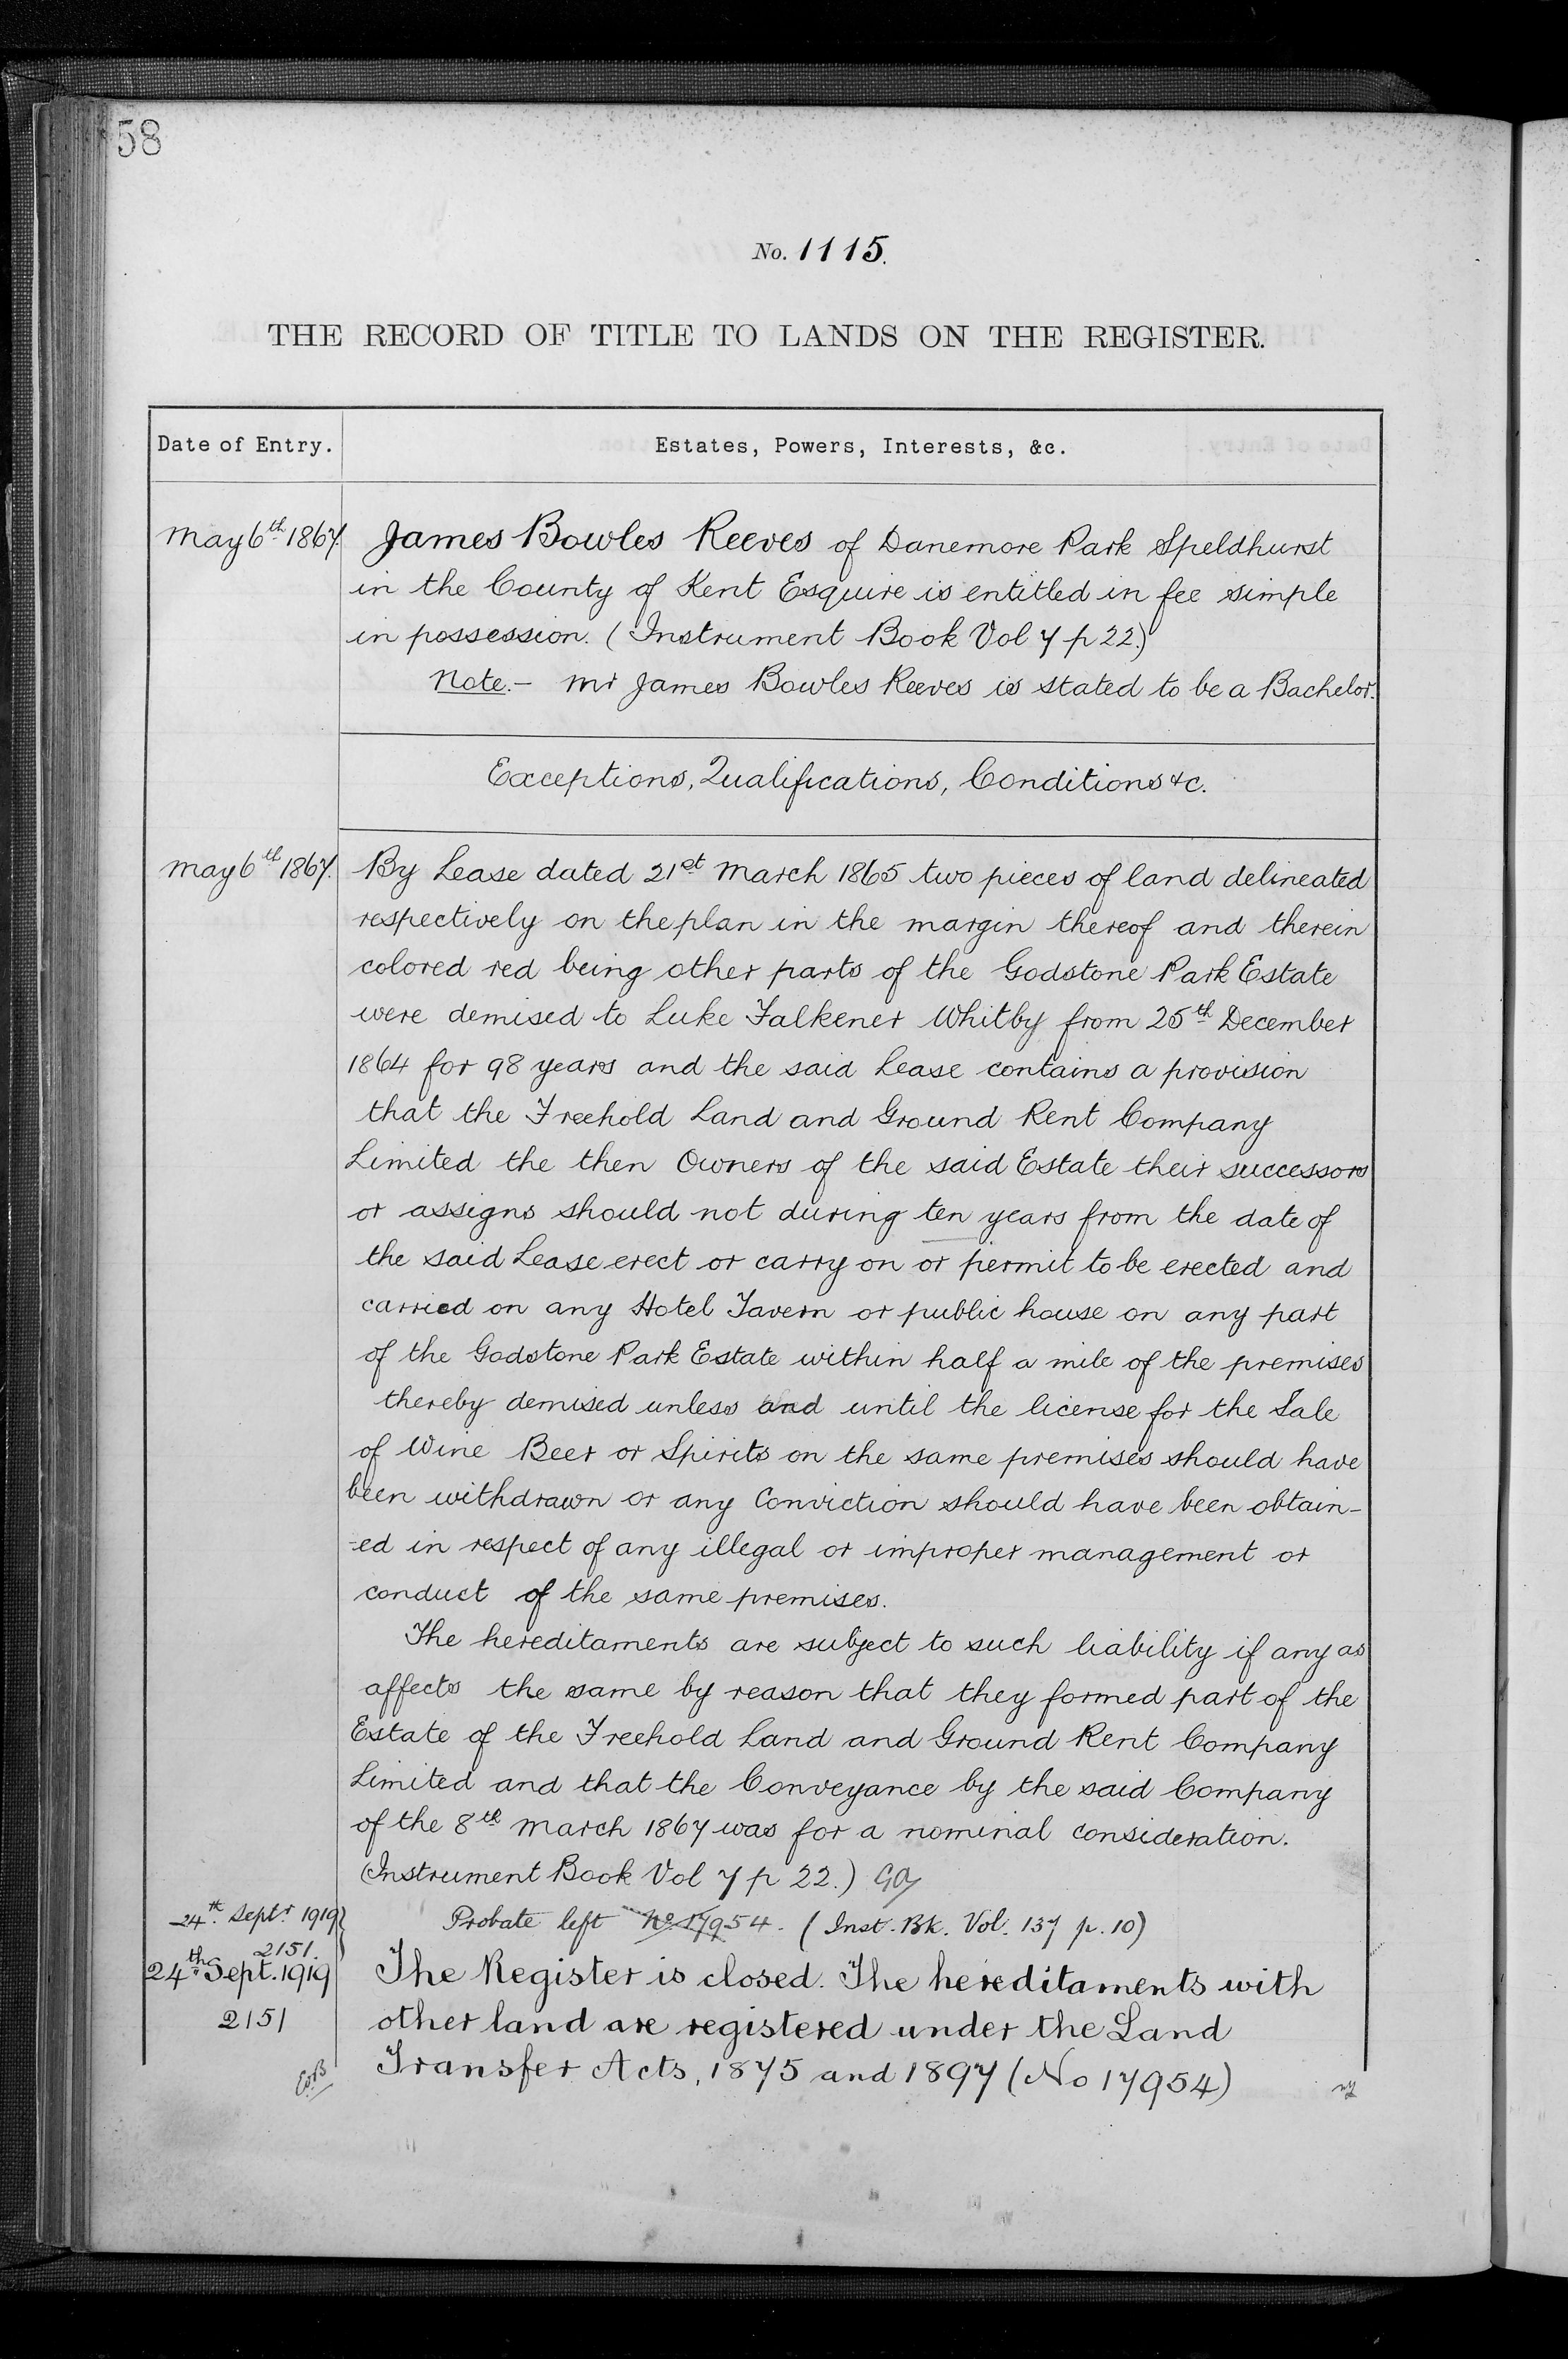 58
No. 1115.
THE RECORD OF TITLE TO LANDS ON THE REGISTER.
Date of Entry.
Estates, Powers, Interests, &c.
May 6th 1867.
James Bowles Reeves of Danemore Park Speldhurst
in the County of Kent Esquire is entitled in fee simple
in possession. (Instrument Book Vol 7 p 22.)
Note.- Mr James Bowles Reeves is stated to be a Bachelor.
Exceptions, Qualifications, Conditions &c.
May 6th 1867.
By Lease dated 21st March 1865 two pieces of land delineated
respectively on the plan in the margin thereof and therein
colored red being other parts of the Godstone Park Estate
were demised to Luke Falkener Whitby from 25th December
1864 for 98 years and the said Lease contains a provision
that the Freehold Land and Ground Rent Company
Limited the then Owners of the said Estate their successors
or assigns should not during ten years from the date of
the said Lease erect or carry on or permit to be erected and
carried on any Hotel Tavern or public house on any part
of the Godstone Park Estate within half a mile of the premises
thereby demised unless and until the license for the Sale
of Wine Beer or Spirits on the same premises should have
been withdrawn or any Conviction should have been obtain-
-ed in respect of any illegal or improper management or
conduct of the same premises.
The hereditaments are subject to such liability if any as
affects the same by reason that they formed part of the
Estate of the Freehold Land and Ground Rent Company
Limited and that the Conveyance by the said Company
of the 8th March 1867 was for a nominal consideration.
(Instrument Book Vol 7 p 22.)
24th Septr 1919
2151.
Probate left No 17954. (Inst. Bk. Vol. 137 p. 10)
24th Sept. 1919
2151
The Register is closed. The hereditaments with
other land are registered under the Land
Transfer Acts, 1875 and 1897 (No 17954)